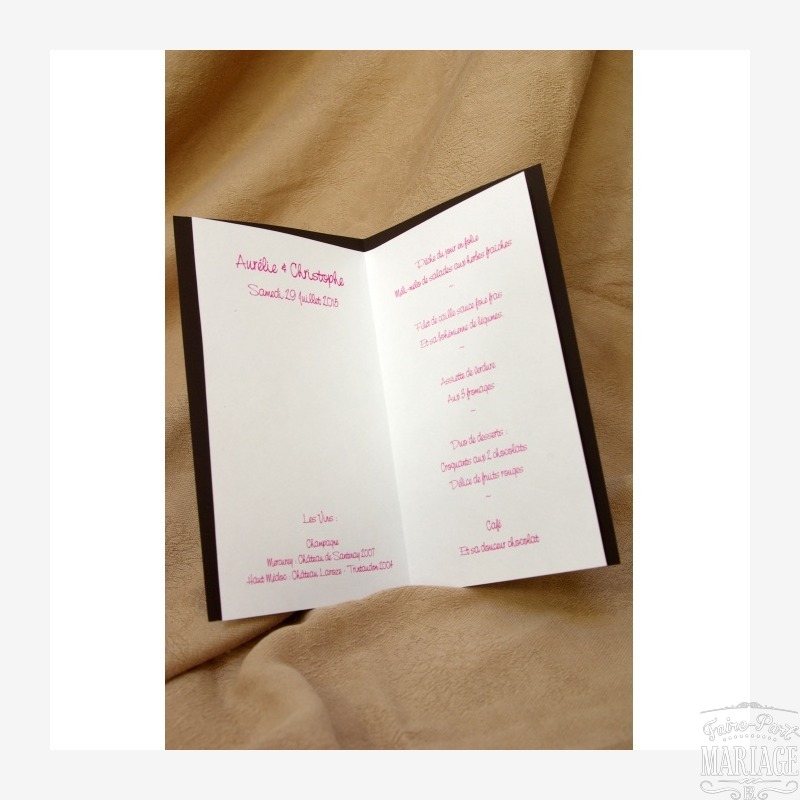 Aurélie & Christophe
Samedi 29 Juillet 2013
Les Vins :
Champagne
Mercurey : Château de Santenay 2007
Haut Médoc : Château Larose - Trintaudon 2004
Pêche du jour en folie
Méli-mélo de salades aux herbes fraîches
~
Filet de caille sauce foie gras
Et sa bohémienne de légumes
~
Assiette de verdure
Aux 3 fromages
~
Duo de desserts :
Croquants aux 2 chocolats
Délice de fruits rouges
~
Café
Et sa douceur chocolat
Faire-Part
MARIAGE